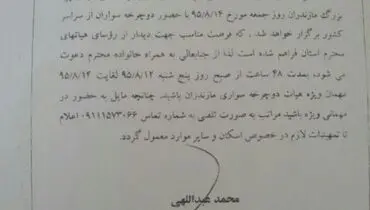 بزرگ مازندران روز جمعه مورخ ۹۵/۸/۱۴ با حضور دوچرخه سواران از سراسر
کشور برگزار خواهد شد، که فرصت مناسب جهت دیدار از رؤسای هیاتهای
محترم استان فراهم شده است لذا از جنابعالی به همراه خانواده محترم دعوت
می شود، بمدت ۴۸ ساعت از صبح روز پنج شنبه ۹۵/۸/۱۲ لغایت ۹۵/۸/۱۴
مهمان ویژه هیات دوچرخه سواری مازندران باشید. چنانچه مایل به حضور در
مهمانی ویژه باشید مراتب به صورت تلفنی به شماره تماس ۰۹۱۱۱۵۷۳۰۶۶ اعلام
تا تمهیدات لازم در خصوص اسکان و سایر موارد معمول گردد.
محمد عبداللهی